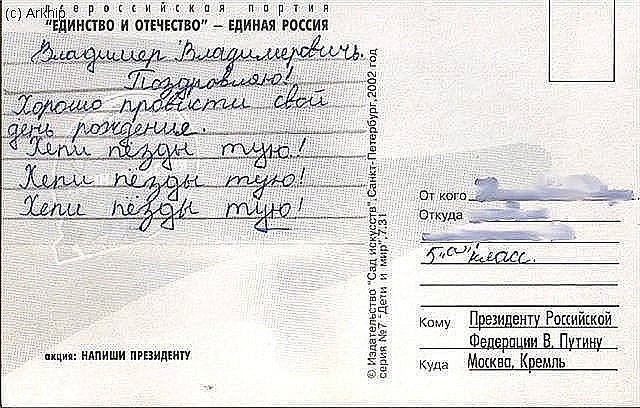 (c) Arkhip
всероссийская партия
"ЕДИНСТВО И ОТЕЧЕСТВО" – ЕДИНАЯ РОССИЯ
Владимер Владимеровичь.
Поздровляю!
Хорошо провисти свой
день рождение.
Хепи пёзды тую!
Хепи пёзды тую!
Хепи пёзды тую!
акция: НАПИШИ ПРЕЗИДЕНТУ
© Издательство "Сад искусств". Санкт-Петербург, 2002 год
серия №7 "Дети и мир", 7.31
От кого
Откуда
5 "а" класс.
Кому Президенту Российской
Федерации В. Путину
Куда Москва, Кремль